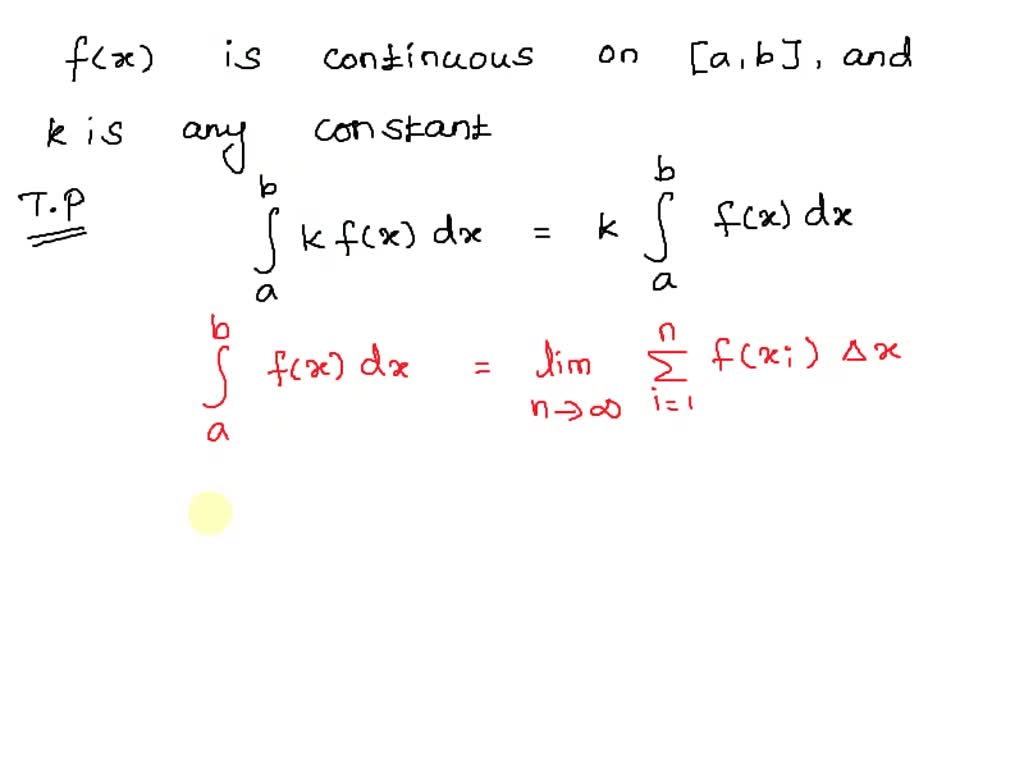 f(x) is continuous on [a,b], and
k is any constant
T.P
∫_a^b k f(x) dx = k ∫_a^b f(x) dx
∫_a^b f(x) dx = lim_{n→∞} ∑_{i=1}^n f(x_i) Δx